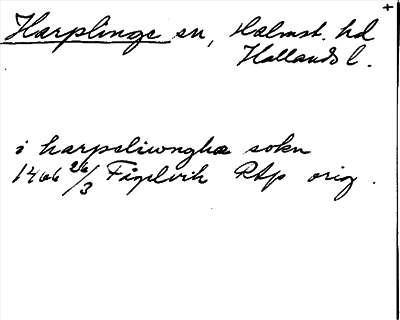 Harplinge sn, Halmst. hd
Hallands l.
i harpsliwngha sokn
1466 26/3 Fågelvik RAp orig.